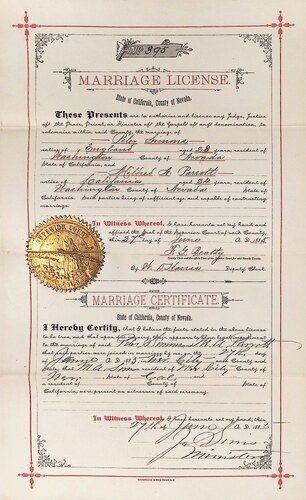 No. 395
MARRIAGE LICENSE.
State of California, County of Nevada.
These Presents are to authorize and license any Judge, Justice
of the Peace, Priest, or Minister of the Gospel of any denomination, to
solemnize within said County the marriage of
Simmons
native of England aged 28 years, resident of
Washington County of Nevada
State of California, and Mildred A. Parrott
native of California aged 24 years, resident of
Washington County of Nevada State of
California. Said parties being of sufficient age and capable of contracting
marriage.
In Witness Whereof, I have hereunto set my hand and
affixed the Seal of the Superior Court of said County,
this 27 day of June A.D. 1885
F. G. Beatty
By W. D. Harris Deputy Clerk
SUPERIOR COURT
MARRIAGE CERTIFICATE.
State of California, County of Nevada.
I Hereby Certify, that I believe the facts stated in the above license
to be true, and that upon due inquiry, there appears to be no legal impediment
to the marriage of said Simmons M. A. Parrott
that said parties were joined in marriage by me on the 27th day
of June A.D. 1885, City County and
State; that M. A. resident of City County of
Nev. State of Cal. and
a resident of County of State of
California, were present as witnesses of said ceremony.
In Witness Whereof, I have hereunto set my hand, this
27th of June A.D. 1885
J. Sims
Minister